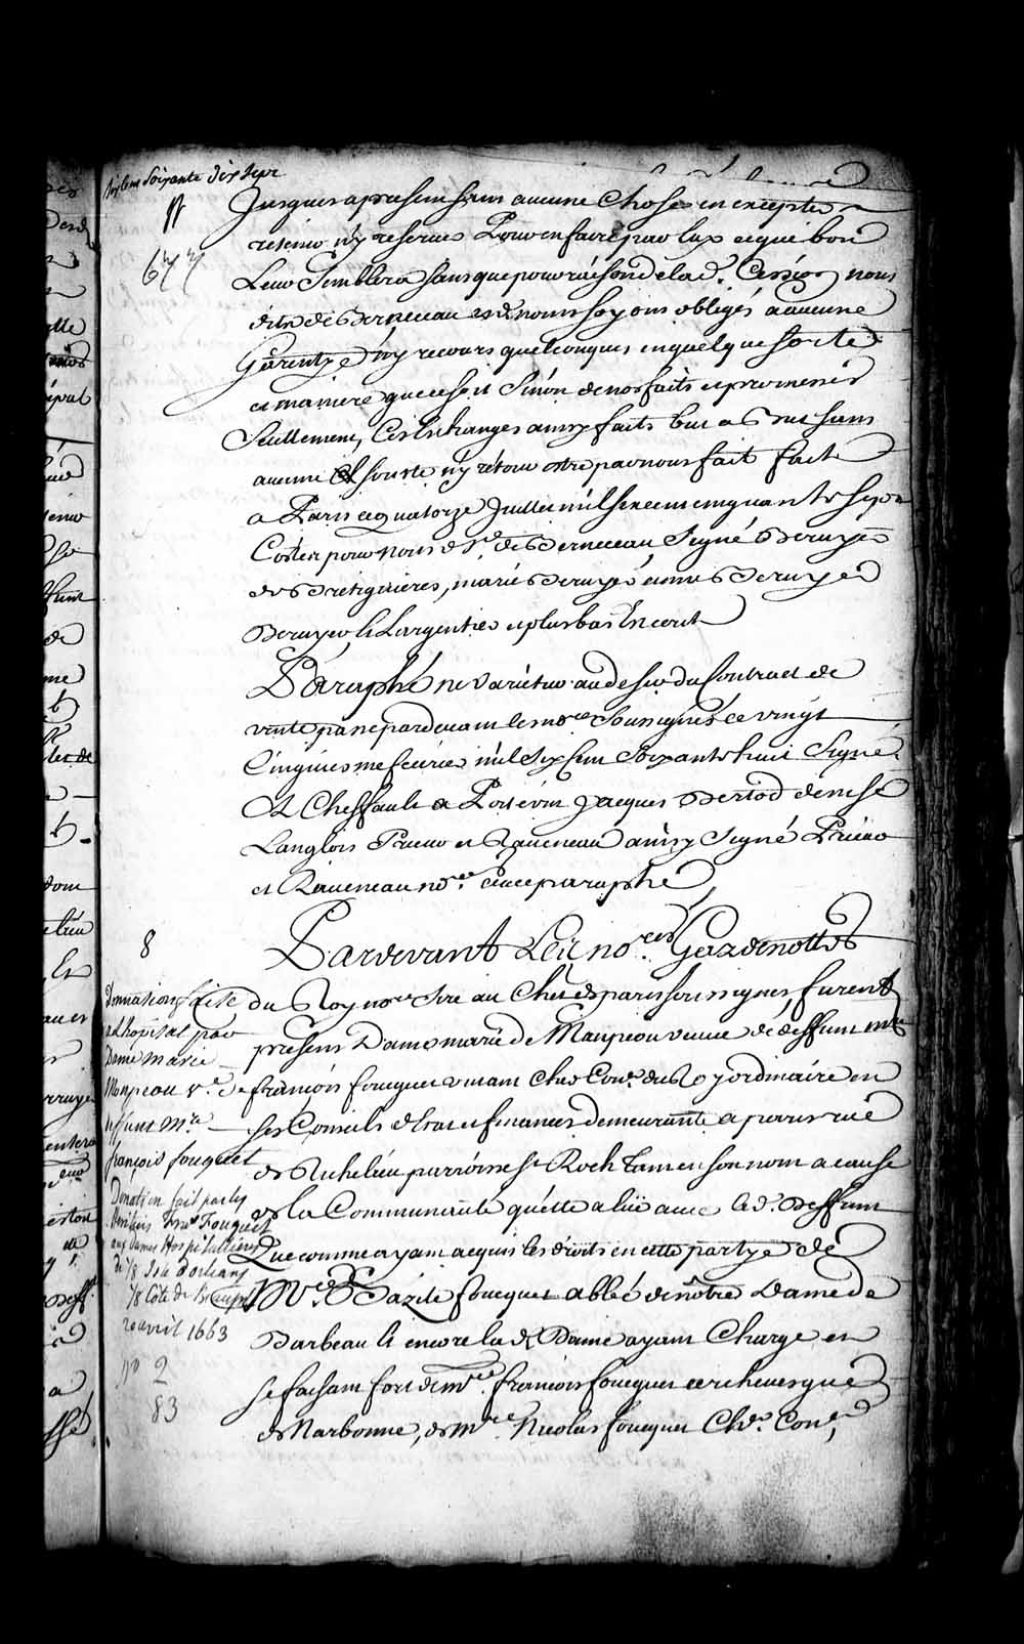 six cent soixante dix sept
677
Jusques a present sans aucune Chose en excepter
retenir n'y reserver Pour en faire par luy ce que bon
Leur Semblera sans que pour raison de lad. Cession nous
dits de Berruyer nous soyons obligés a aucune
Garentye n'y recours quelconques, en quelque sorte
et maniere que ce soit Sinon de nos faits et promesses
Seullement, Ces Echanges ainsy faits but a but sans
aucune soulte n'y retour estre par nous fait fait
a Paris ce quatorze Juillet mil six cens cinquante sept
Signé Berruyer
marie Berruyer
Berruyer le Largentier et plus bas Est ecrit
Paraphé ne varietur au desir du Contract de
vente passé pardevant les no.res Soussignés ce vingt
Cinquiesme feurier mil Six Cent Soixante huit Signé
Cheffault Jacques Bertod denise
Langlois Prieur et Raveneau ainsy Signé Prieur
et Raveneau no.res avec paraphe
8
Pardevant Les no.res Gardenottes
du Roy no.re Sire au Ch.let de paris soussignés, furent
presens Dame marie de Maupeou veuue de deffunt m.re
françois foucquet viuant Cher Con.er du Roy ordinaire en
ses Conseils d'Etat et finances demeurante a paris rue
de Richelieu parroisse S.t Roch tant en son nom a cause
de la Communauté qu'elle a eüe auec led. Deffunt
Que comme ayant acquis les droits en cette partye de
M.re Bazile foucquet abbé de nôtre Dame de
Barbeau et encore lad. Dame ayant Charge et
se faisant fort de m.re françois foucquet archeuesque
de Narbonne, de m.re Nicolas foucquet Ch.er Con.er
Donnation faite
a L'hopital par
Dame marie
Maupeou v.e de
deffunt M.re
françois fouquet
Donation fait par les
heritiers Fouquet
aux Dames Hospitallieres
de 1/8 Isle d'orleans
1/8 Côte de Beaupré
20 avril 1663
n° 2
83